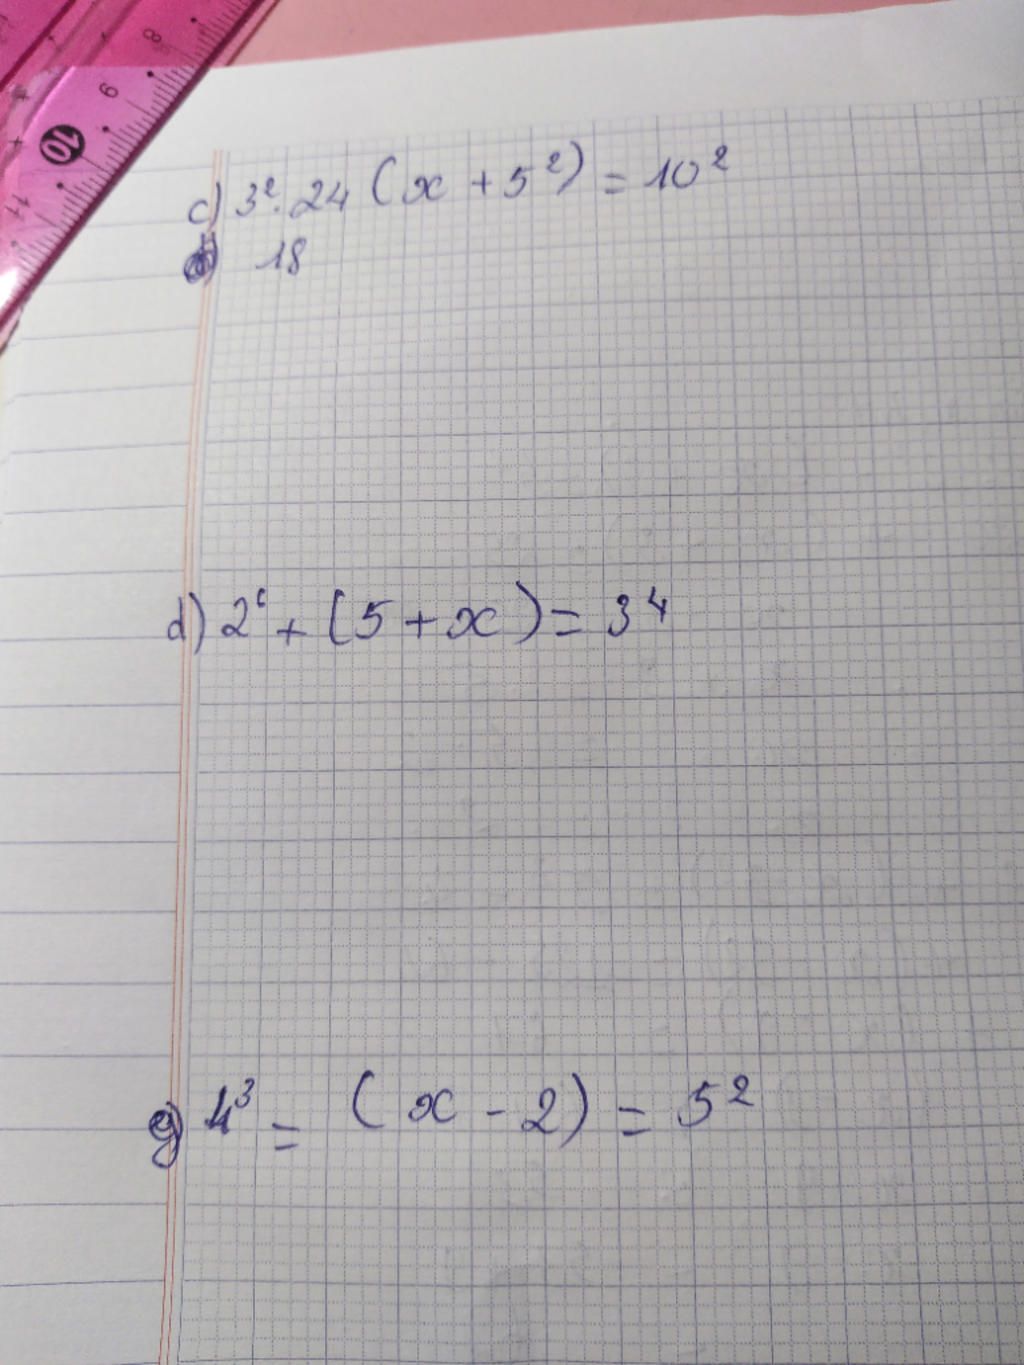 8
9
10
11
c) 3². 24 (x + 5²) = 10²
18
d) 2⁶ + (5 + x) = 3⁴
g) 4³ = (x - 2) = 5²